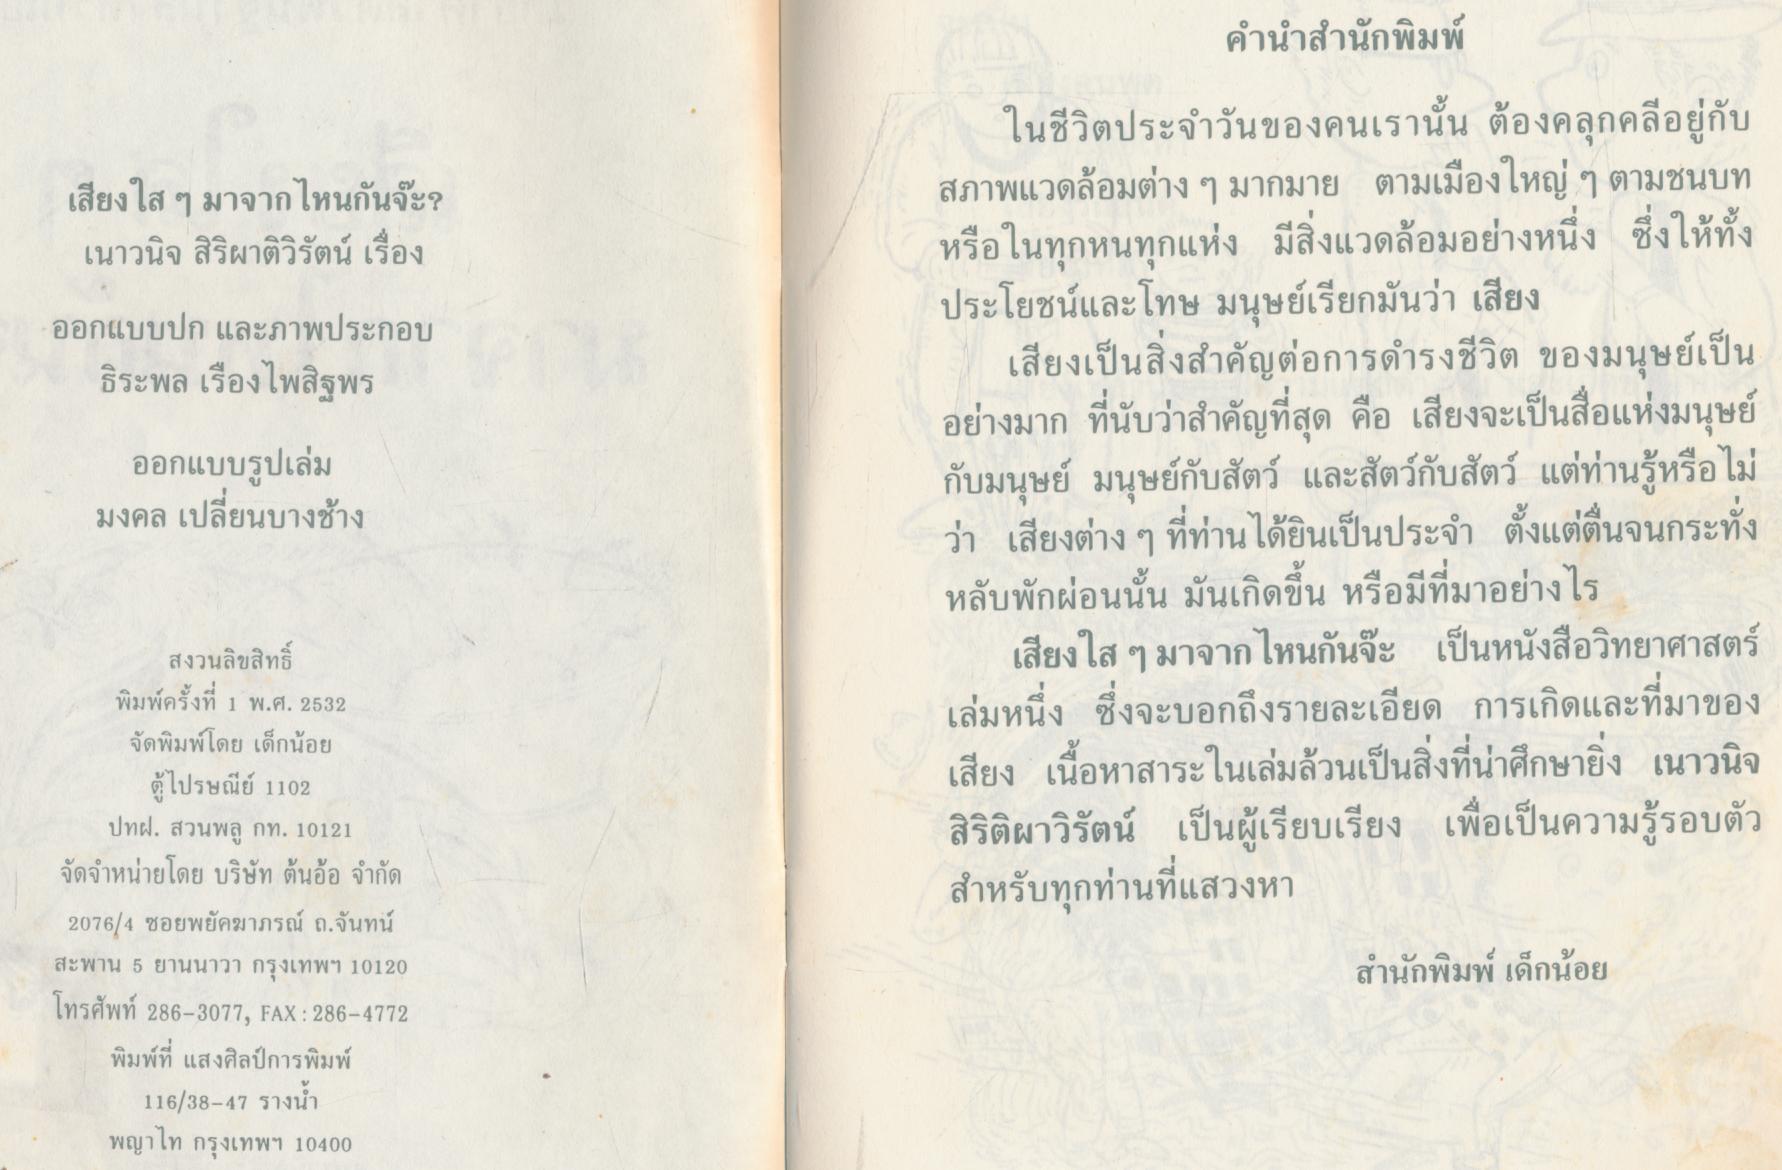 เสียงใส ๆ มาจากไหนกันจ๊ะ?
เนาวนิจ สิริผาติวิรัตน์ เรื่อง
ออกแบบปก และภาพประกอบ
ธิระพล เรืองไพสิฐพร
ออกแบบรูปเล่ม
มงคล เปลี่ยนบางช้าง
สงวนลิขสิทธิ์
พิมพ์ครั้งที่ 1 พ.ศ. 2532
จัดพิมพ์โดย เด็กน้อย
ตู้ไปรษณีย์ 1102
ปทฝ. สวนพลู กท. 10121
จัดจำหน่ายโดย บริษัท ต้นอ้อ จำกัด
2076/4 ซอยพยัคฆาภรณ์ ถ.จันทน์
สะพาน 5 ยานนาวา กรุงเทพฯ 10120
โทรศัพท์ 286-3077, FAX : 286-4772
พิมพ์ที่ แสงศิลป์การพิมพ์
116/38-47 รางน้ำ
พญาไท กรุงเทพฯ 10400
คำนำสำนักพิมพ์
ในชีวิตประจำวันของคนเรานั้น ต้องคลุกคลีอยู่กับ
สภาพแวดล้อมต่าง ๆ มากมาย ตามเมืองใหญ่ ๆ ตามชนบท
หรือในทุกหนทุกแห่ง มีสิ่งแวดล้อมอย่างหนึ่ง ซึ่งให้ทั้ง
ประโยชน์และโทษ มนุษย์เรียกมันว่า เสียง
เสียงเป็นสิ่งสำคัญต่อการดำรงชีวิต ของมนุษย์เป็น
อย่างมาก ที่นับว่าสำคัญที่สุด คือ เสียงจะเป็นสื่อแห่งมนุษย์
กับมนุษย์ มนุษย์กับสัตว์ และสัตว์กับสัตว์ แต่ท่านรู้หรือไม่
ว่า เสียงต่าง ๆ ที่ท่านได้ยินเป็นประจำ ตั้งแต่ตื่นจนกระทั่ง
หลับพักผ่อนนั้น มันเกิดขึ้น หรือมีที่มาอย่างไร
เสียงใส ๆ มาจากไหนกันจ๊ะ เป็นหนังสือวิทยาศาสตร์
เล่มหนึ่ง ซึ่งจะบอกถึงรายละเอียด การเกิดและที่มาของ
เสียง เนื้อหาสาระในเล่มล้วนเป็นสิ่งที่น่าศึกษายิ่ง เนาวนิจ
สิริติผาวิรัตน์ เป็นผู้เรียบเรียง เพื่อเป็นความรู้รอบตัว
สำหรับทุกท่านที่แสวงหา
สำนักพิมพ์ เด็กน้อย